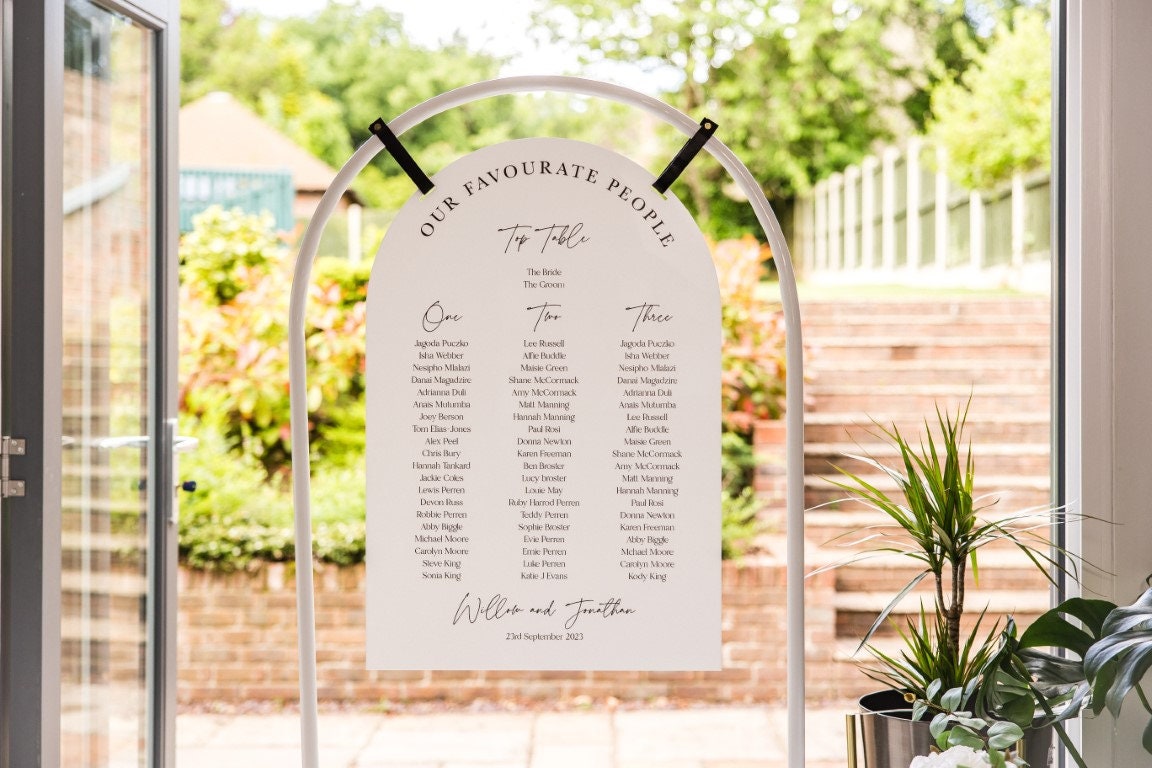 OUR FAVOURATE PEOPLE
Top Table
The Bride
The Groom
One
Jagoda Puczko
Isha Webber
Nesipho Mlalazi
Danai Magadzire
Adrianna Duli
Anais Mutumba
Joey Berson
Tom Elias-Jones
Alex Peel
Chris Bury
Hannah Tankard
Jackie Coles
Lewis Perren
Devon Russ
Robbie Perren
Abby Biggle
Michael Moore
Carolyn Moore
Steve King
Sonia King
Two
Lee Russell
Alfie Buddle
Maisie Green
Shane McCormack
Amy McCormack
Matt Manning
Hannah Manning
Paul Rosi
Donna Newton
Karen Freeman
Ben Broster
Lucy broster
Louie May
Ruby Harrod Perren
Teddy Perren
Sophie Broster
Evie Perren
Ernie Perren
Luke Perren
Katie J Evans
Three
Jagoda Puczko
Isha Webber
Nesipho Mlalazi
Danai Magadzire
Adrianna Duli
Anais Mutumba
Lee Russell
Alfie Buddle
Maisie Green
Shane McCormack
Amy McCormack
Matt Manning
Hannah Manning
Paul Rosi
Donna Newton
Karen Freeman
Abby Biggle
Michael Moore
Carolyn Moore
Kody King
Willow and Jonathan
23rd September 2023